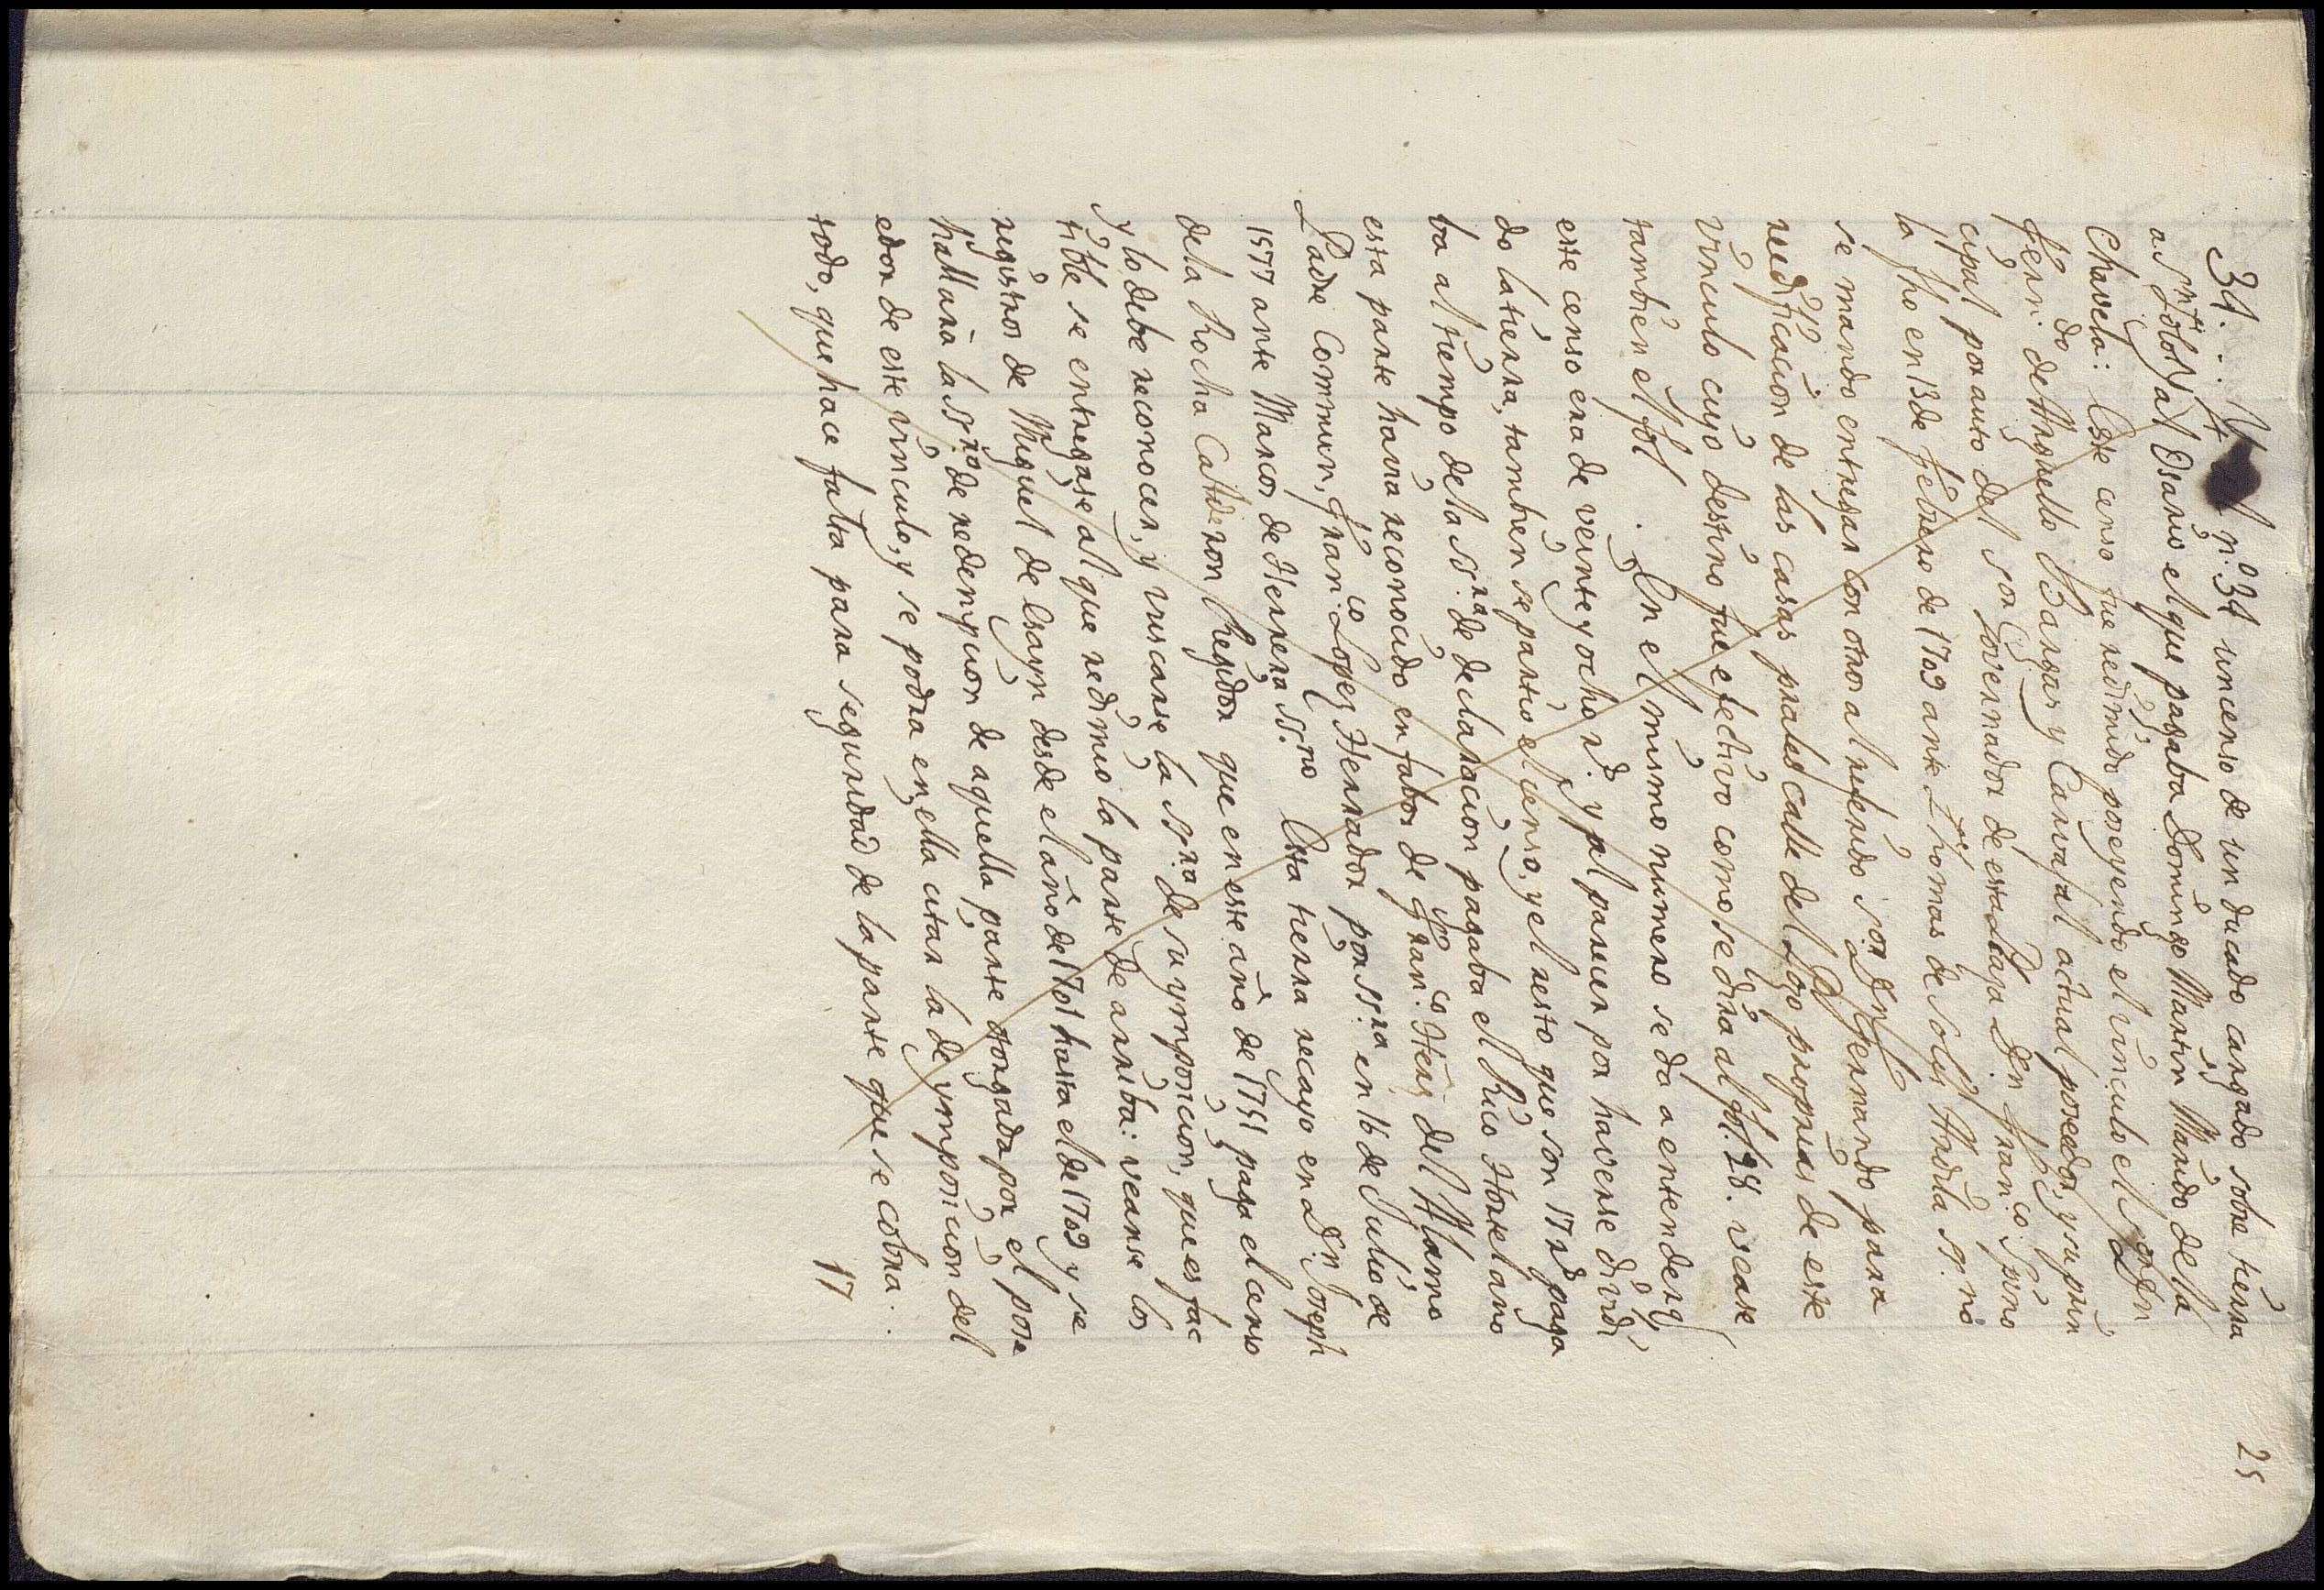 25
34 . . . Yt. n.º 34 un censo de un ducado cargado sobre tierra
a S.n y al Osario el que pagaba Domingo Martin Marido de la
Chavela: Este censo fue redimido poseyendo el vinculo el s.or D.n
Fern.do de Arguello Bargas y Carvajal actual poseedor, y su prin
cipal por auto del s.or Governador de esta Plaza D.n Fran.co Spino
la fho en 13 de febrero de 1709 ante Thomas de Solis Abdula ss.no
se mando entregar con otros al referido s.or D.n Fernando para
reedificacion de las casas prales calle del Pozo proprias de este
vinculo cuyo destino fue efectivo como se dira al fol. 28. vease
tambien el fol . En el mismo numero se da a entender q
este censo era de veinte y ocho r.s y al parecer por haverse dividi
do la tierra, tambien se partio el censo, y el resto que son 17 r.s paga
ba al tiempo de la ss.ra de declaracion pagaba el Rico Hortelano
esta parte havia reconocido en fabor de Fran.co Hern.z del Alamo
Padre Commun, Fran.co Lopez Herrador por ss.ra en 16 de Julio de
1577 ante Marcos de Herrera ss.no Esta tierra recayo en D.n Joseph
de la Rocha Calderon Regidor que en este año de 1751 paga el censo
y lo debe reconocer, y buscarse la ss.ra de su ymposicion, que es fac
tible se entregase al que redimio la parte de arriba: veanse los
registros de Miguel de Esayn desde el año de 1701 hasta el de 1709 y se
hallara la ss.ra de redempcion de aquella parte otorgada por el pose
edor de este vinculo, y se podra en ella citar la de ymposicion del
todo, que hace falta para seguridad de la parte que se cobra. 17